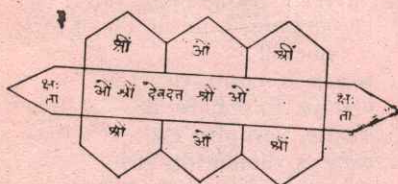 श्रीं ओं श्रीं
क्षः ता ओं श्रीं देवदत्त श्रीं ओं क्षः ता
श्रीं ओं श्रीं